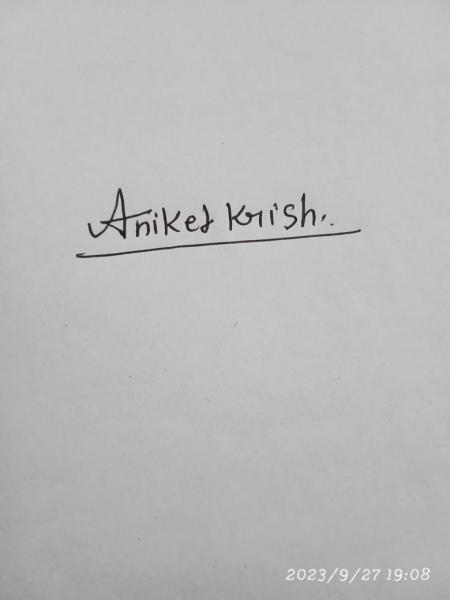 Aniket Krish..
2023/9/27 19:08